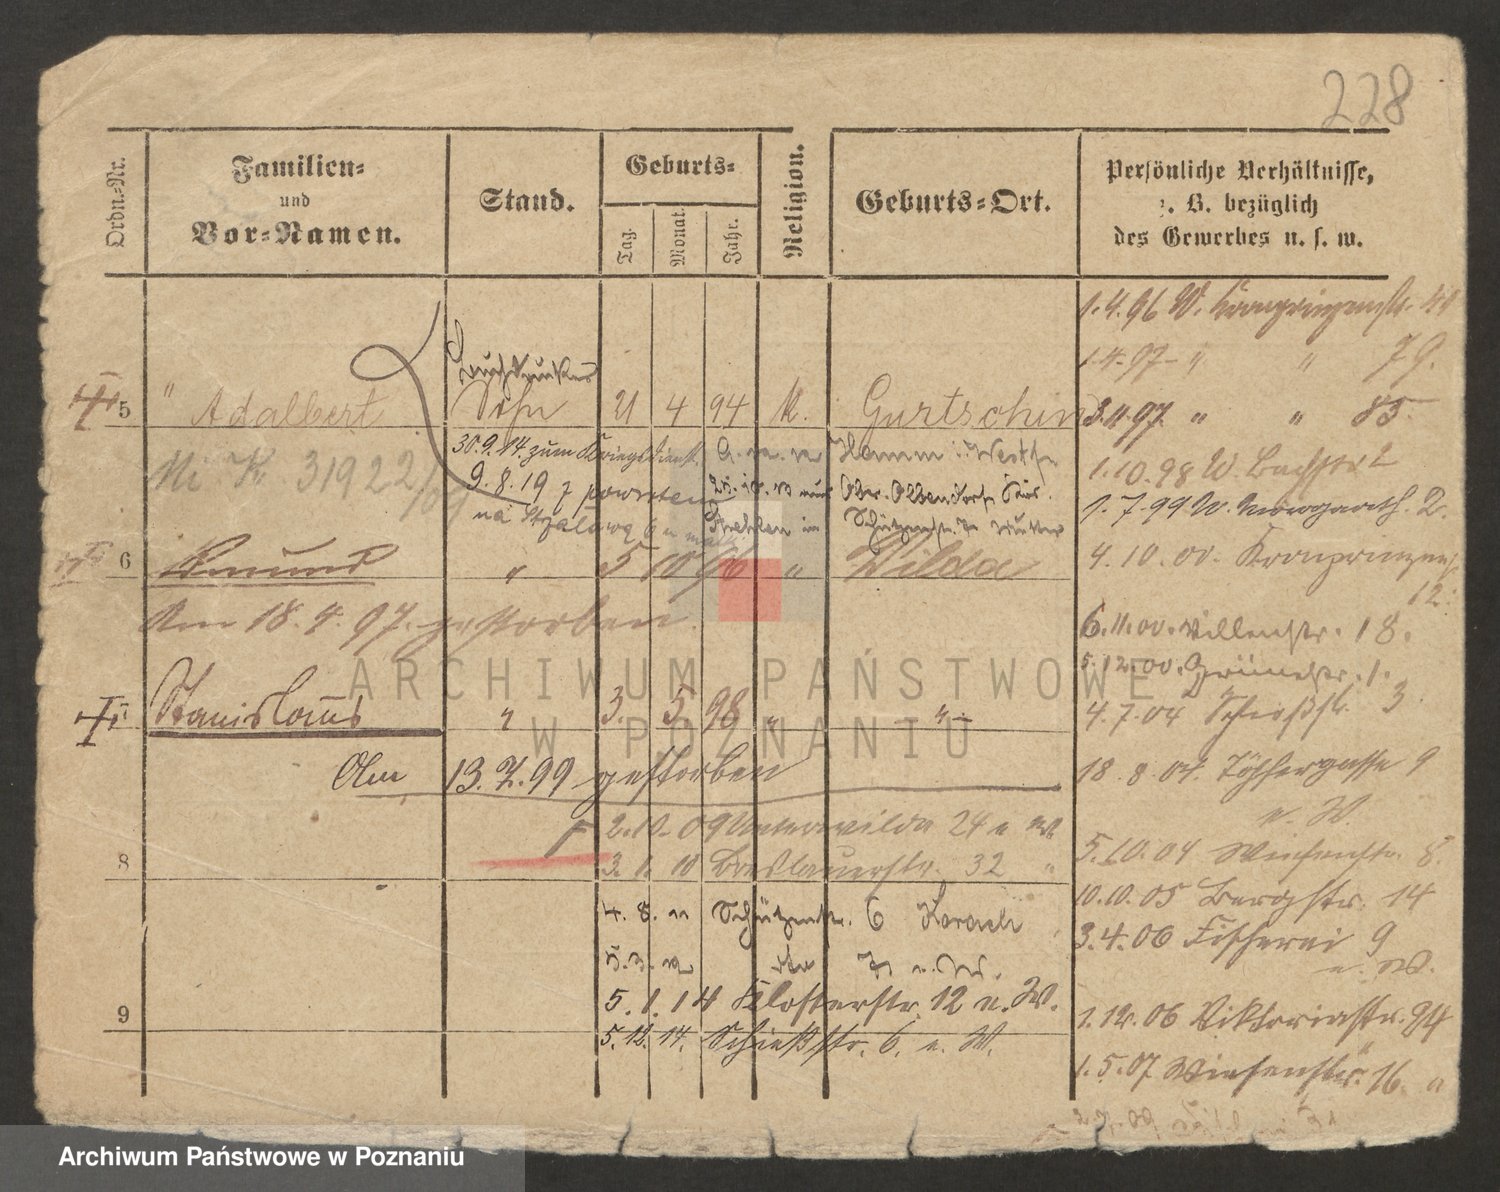 228
Ordn.-Nr.
Familien-
und
Vor-Namen.
Stand.
Geburts-
Tag.
Monat.
Jahr.
Religion.
Geburts-Ort.
Persönliche Verhältnisse,
z. B. bezüglich
des Gewerbes u. s. w.
1.4.96 W. Kronprinzenstr.
1.4.97 " " 79.
Buchdrucker
5 " Adalbert Sohn 21 4 94 K. Gurtschin
3.11.97. " " 85.
30.9.14. zum Kriegsdienst Hamm i. Westf.
1.10.98 W. Bachstr.
Mi. K. 31922/09
9.8.19 z powrotem
1.7.99 W. Margareth. 2.
na Strzałową 6
Schützenstr.
6 Edmund " 5 10 96 " Wilda
4.10.00. Kronprinzenstr.
12.
Am 18.4.97. gestorben.
6.11.00. Villenstr. 18.
5.12.00. Grünestr. 1.
7 Stanislaus " 3. 5. 98 " "
4.7.04 Schießstr. 3
ARCHIWUM PAŃSTWOWE
W POZNANIU
Am 13.7.99 gestorben
18.8.04. Töpfergasse 9
u. W.
2.10.09 Unterwilda 24 u. W.
5.10.04 Wiesenstr. 8.
8 3.1.10 Breslauerstr. 32 "
10.10.05 Bergstr. 14
4.8. Schützenstr. 6
3.4.06 Fischerei 9
u. W.
5.3. u. W.
5.1.14 Klosterstr. 12 u. W.
1.12.06 Viktoriastr. 24
9 5.12.14. Schießstr. 6. u. W.
1.5.07 Wiesenstr. 16.
Archiwum Państwowe w Poznaniu